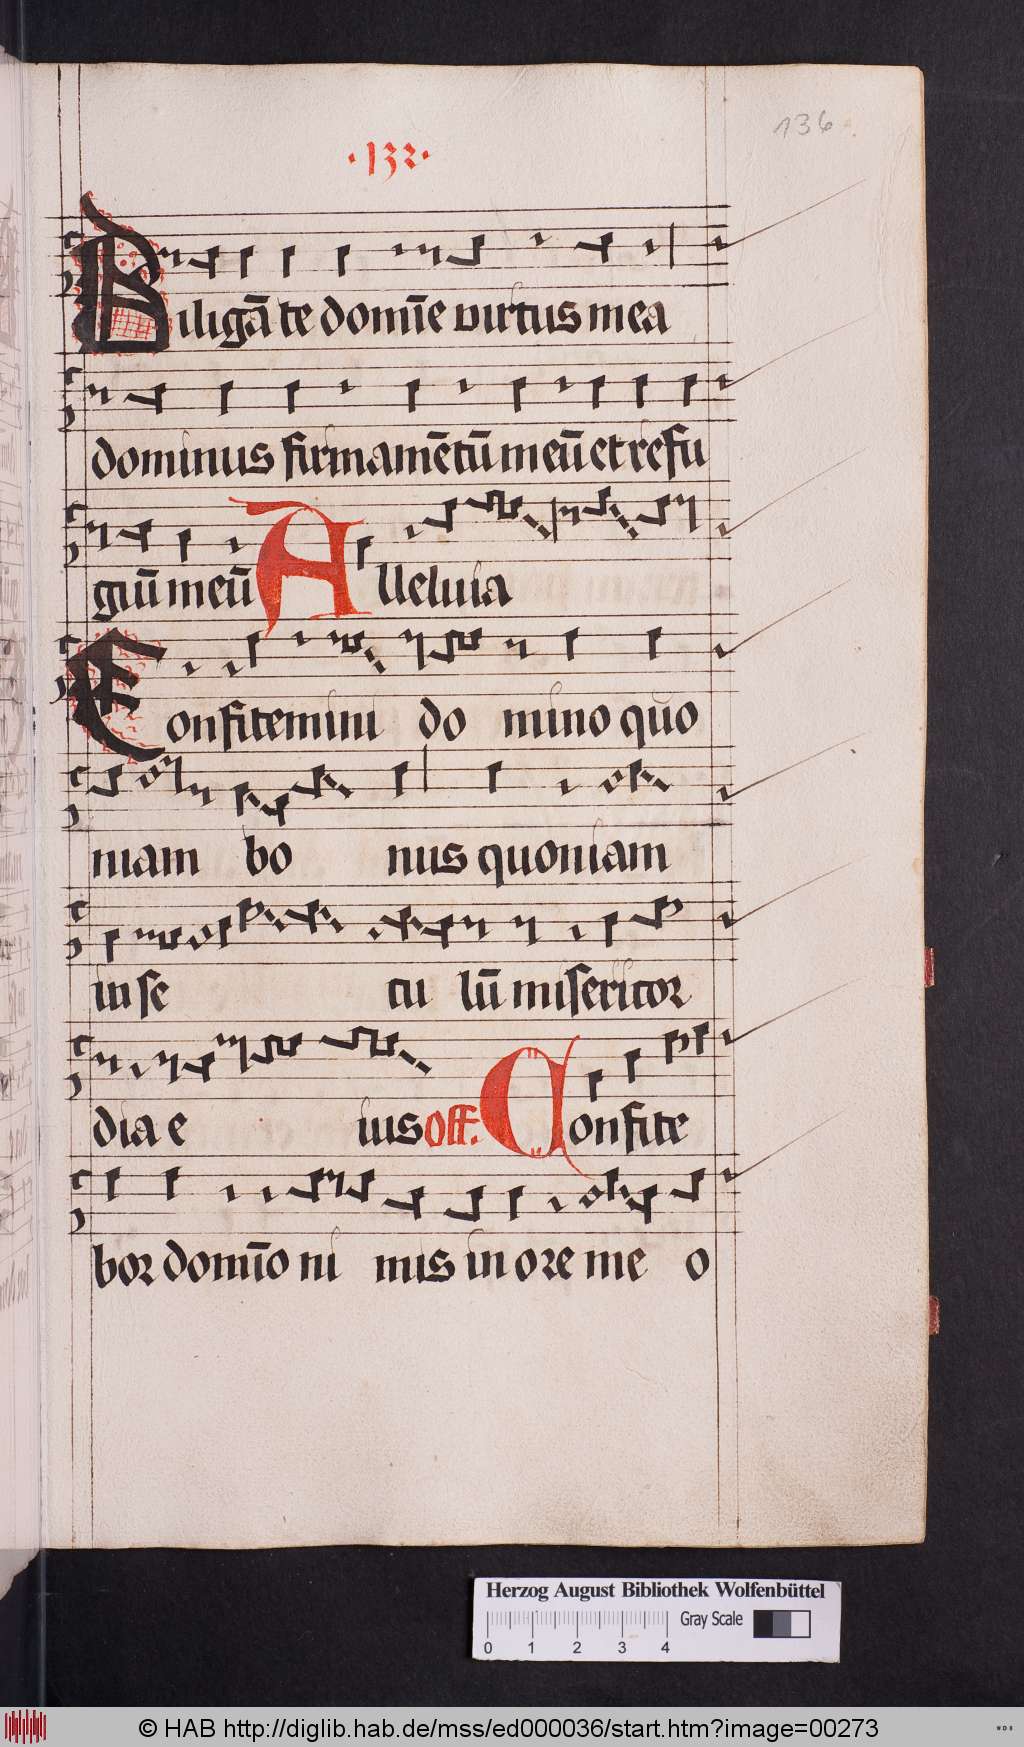 136
·132·
Diligā te domīe virtus mea
dominus firmamētū meū et refu
giū meū Alleluia
Confitemini do mino quo
niam bo nus quoniam
in se cu lū misericor
dia e ius off. Confite
bor domīo ni mis in ore me o
Herzog August Bibliothek Wolfenbüttel
Gray Scale
0 1 2 3 4
© HAB http://diglib.hab.de/mss/ed000036/start.htm?image=00273